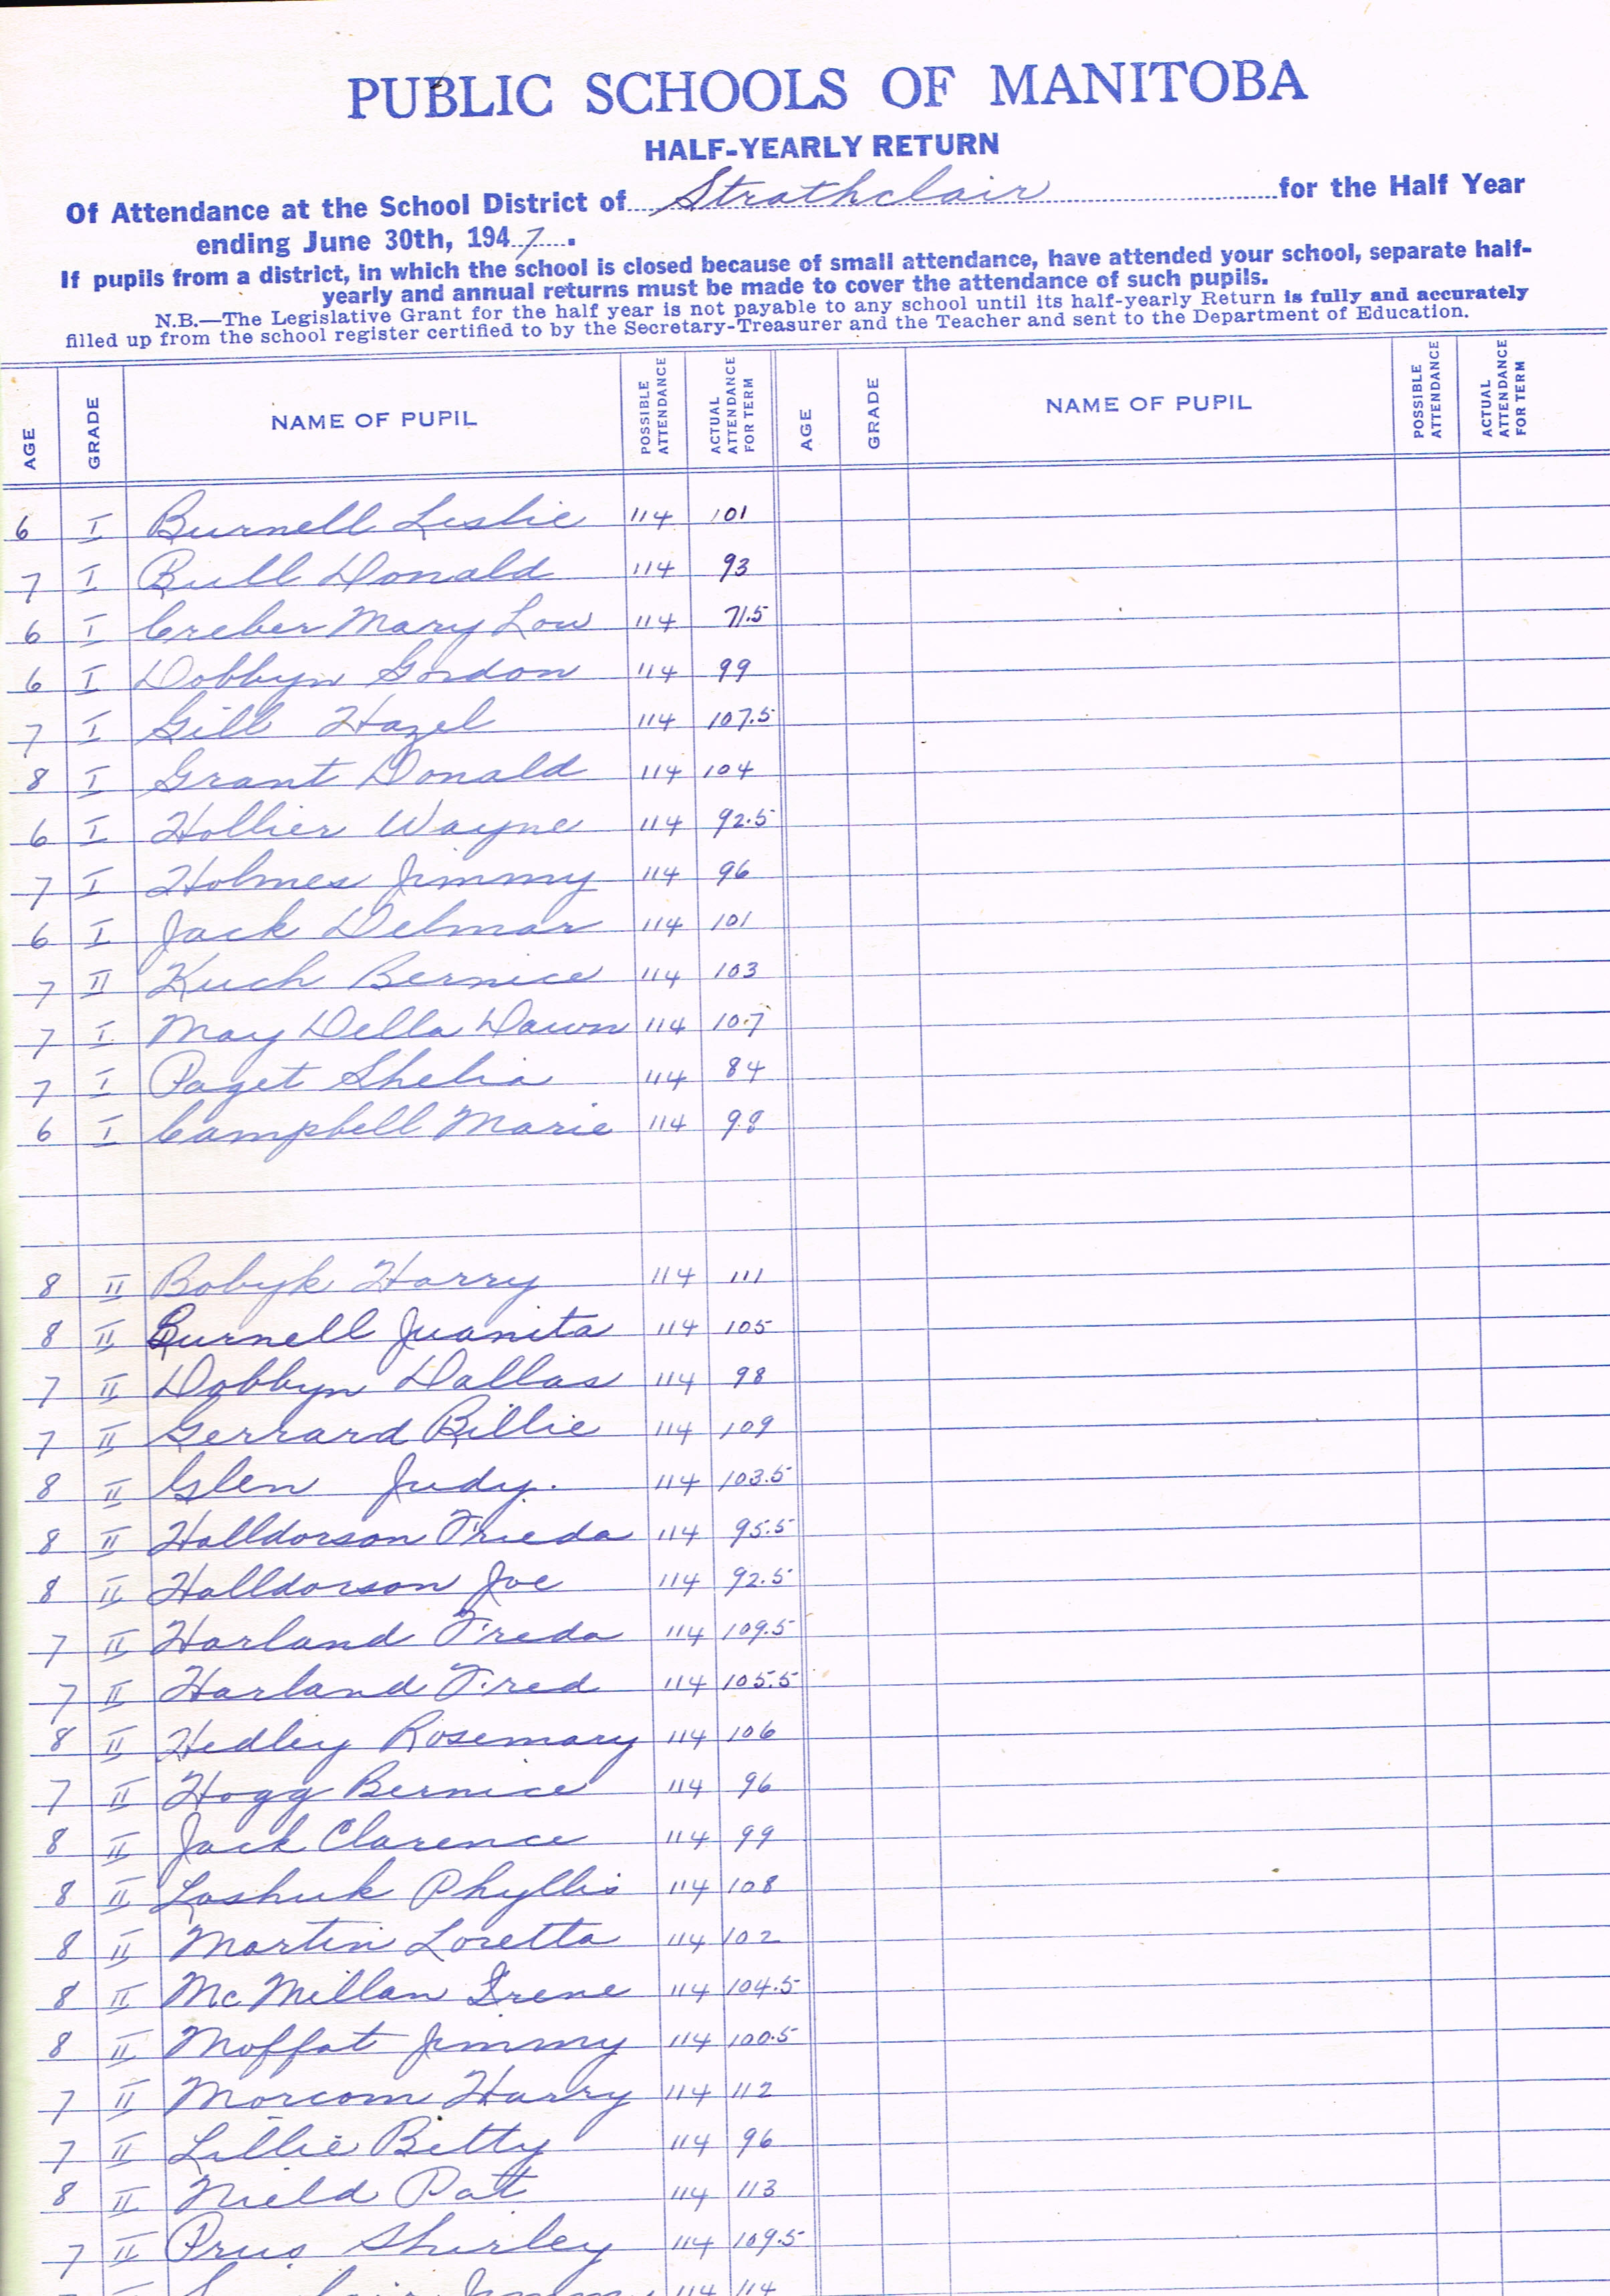 PUBLIC SCHOOLS OF MANITOBA
HALF-YEARLY RETURN
Of Attendance at the School District of Strathclair for the Half Year
ending June 30th, 1947.
If pupils from a district, in which the school is closed because of small attendance, have attended your school, separate half-
yearly and annual returns must be made to cover the attendance of such pupils.
N.B.—The Legislative Grant for the half year is not payable to any school until its half-yearly Return is fully and accurately
filled up from the school register certified to by the Secretary-Treasurer and the Teacher and sent to the Department of Education.
AGE GRADE NAME OF PUPIL POSSIBLE ATTENDANCE ACTUAL ATTENDANCE FOR TERM AGE GRADE NAME OF PUPIL POSSIBLE ATTENDANCE ACTUAL ATTENDANCE FOR TERM
6 I Burnell Leslie 114 101
7 I Bull Donald 114 93
6 I Creber Mary Lou 114 71.5
6 I Dobbyn Gordon 114 99
7 I Gill Hazel 114 107.5
8 I Grant Donald 114 104
6 I Hollier Wayne 114 92.5
7 I Holmes Jimmy 114 96
6 I Jack Delmar 114 101
7 II Kuch Bernice 114 103
7 I May Della Dawn 114 107
7 I Paget Shelia 114 84
6 I Campbell Marie 114 98
8 II Bobyk Harry 114 111
8 II Burnell Juanita 114 105
7 II Dobbyn Dallas 114 98
7 II Gerrard Billie 114 109
8 II Glen Judy. 114 103.5
8 II Halldorson Frieda 114 95.5
8 II Halldorson Joe 114 92.5
7 II Harland Freda 114 109.5
7 II Harland Fred 114 105.5
8 II Hedley Rosemary 114 106
7 II Hogg Bernice 114 96
8 II Jack Clarence 114 99
8 II Loshuk Phyllis 114 108
8 II Martin Loretta 114 102
8 II McMillan Irene 114 104.5
8 II Moffat Jimmy 114 100.5
7 II Morcom Harry 114 112
7 II Lillie Betty 114 96
8 II Nield Pat 114 113
7 II Prus Shirley 114 109.5
114 114